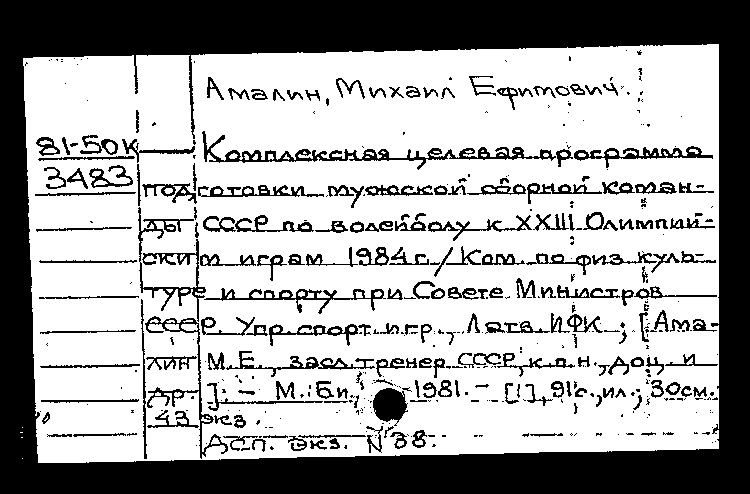 Амалин, Михаил Ефимович.
81-50к Комплексная целевая программа
3483 подготовки мужской сборной коман-
ды СССР по волейболу к XXIII Олимпий-
ским играм 1984 г. / Ком. по физ. куль-
туре и спорту при Совете Министров
СССР. Упр. спорт. игр., Латв. ИФК ; [Ама-
лин М.Е., засл. тренер СССР, к.п.н., доц. и
др.]. – М. : Б.и., 1981. – [1], 91 с., ил.; 30 см.
43 экз.
Дсп. Экз. N 38.